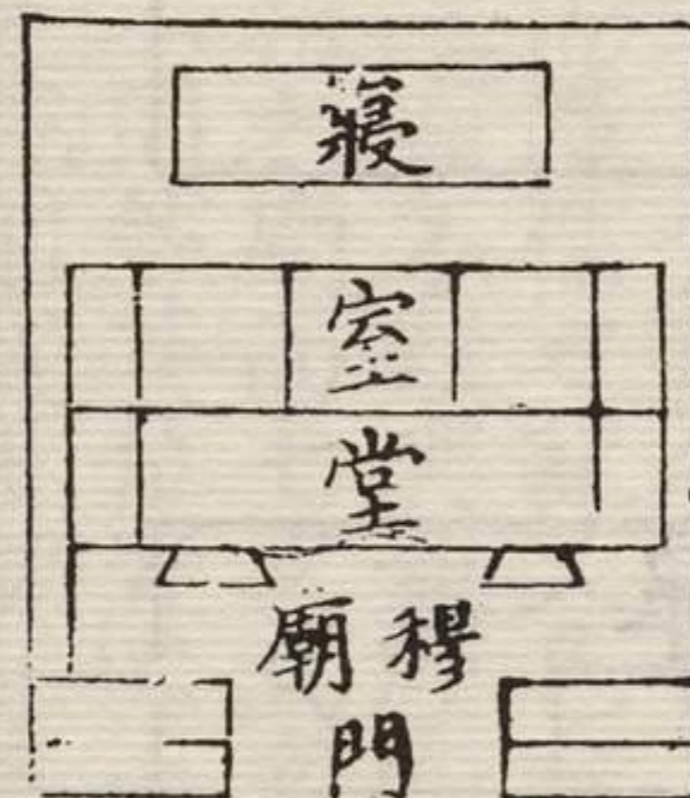 寢
室
堂
穆廟
門